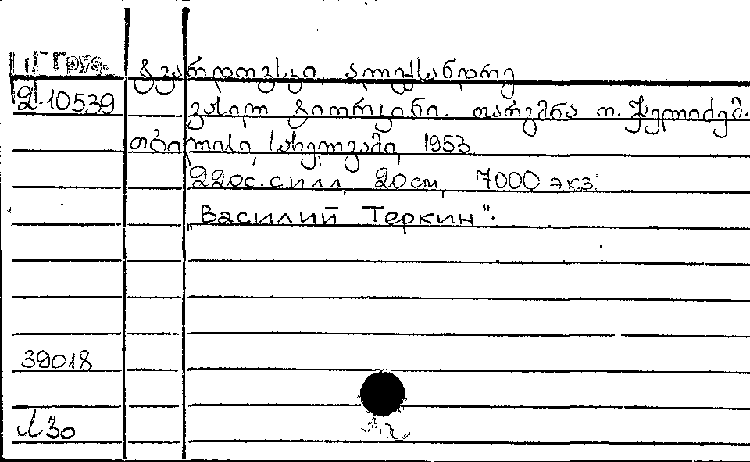 Груз. ტვარდოვსკი, ალექსანდრე
2-10539 ვასილ ტიორკინი. თარგმნა ო. ჭელიძემ.
თბილისი, სახელგამი, 1953
220с. с илл, 20 см, 7000 экз.
"Василий Теркин".
39018
130